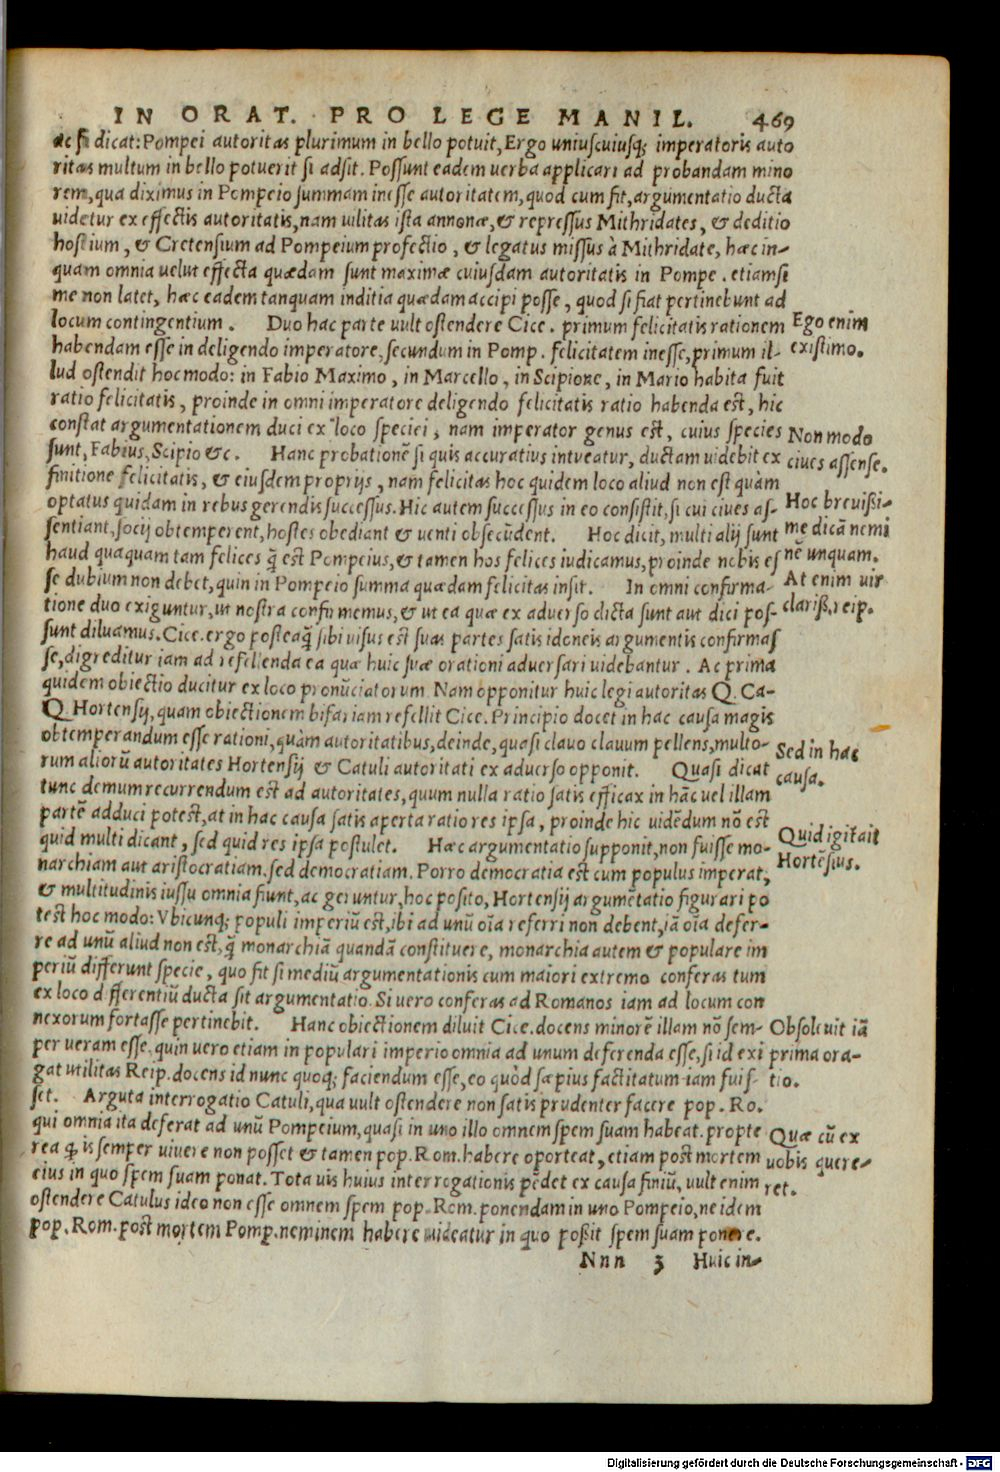 IN ORAT. PRO LEGE MANIL. 469
ac si dicat: Pompei autoritas plurimum in bello potuit, Ergo uniuscuiusq; imperatoris auto
ritas multum in bello potuerit si adsit. Possunt eadem uerba applicari ad probandam mino
rem, qua diximus in Pompeio summam inesse autoritatem, quod cum fit, argumentatio ducta
uidetur ex effectis autoritatis, nam uilitas ista annonæ, & repressus Mithridates, & deditio
hostium, & Cretensium ad Pompeium profectio, & legatus missus à Mithridate, hæc in-
quam omnia uelut effecta quædam sunt maximæ cuiusdam autoritatis in Pompe. etiamsi
me non latet, hæc eadem tanquam inditia quædam accipi posse, quod si fiat pertinebunt ad
locum contingentium. Duo hac parte uult ostendere Cice. primum felicitatis rationem
Ego enim
habendam esse in deligendo imperatore, secundum in Pomp. felicitatem inesse, primum il-
existimo.
lud ostendit hoc modo: in Fabio Maximo, in Marcello, in Scipione, in Mario habita fuit
ratio felicitatis, proinde in omni imperatore deligendo felicitatis ratio habenda est, hic
constat argumentationem duci ex loco speciei, nam imperator genus est, cuius species
Non modo
sunt, Fabius, Scipio &c. Hanc probationē si quis accuratius intueatur, ductam uidebit ex
ciues assense.
finitione felicitatis, & eiusdem proprijs, nam felicitas hoc quidem loco aliud non est quàm
optatus quidam in rebus gerendis successus. Hic autem successus in eo consistit, si cui ciues as-
Hoc breuißi-
sentiant, socij obtemperent, hostes obediant & uenti obsecūdent. Hoc dicit, multi alij sunt
me dicā nemi
haud quaquam tam felices q̃ est Pompeius, & tamen hos felices iudicamus, proinde nobis es
nē unquam.
se dubium non debet, quin in Pompeio summa quædam felicitas insit. In omni confirma-
At enim uir
tione duo exiguntur, ut nostra confirmemus, & ut ea quæ ex aduerso dicta sunt aut dici pos-
clariß, reip.
sunt diluamus. Cice. ergo posteaq̃ sibi uisus est suas partes satis idoneis argumentis confirmas
se, digreditur iam ad refellenda ea quæ huic suæ orationi aduersari uidebantur. Ac prima
quidem obiectio ducitur ex loco pronūciatorum Nam opponitur huic legi autoritas Q. Ca-
Q. Hortensij, quam obiectionem bifariam refellit Cice. Principio docet in hac causa magis
obtemperandum esse rationi, quàm autoritatibus, deinde, quasi clauo clauum pellens, multo-
rum aliorū autoritates Hortensij & Catuli autoritati ex aduerso opponit. Quasi dicat
Sed in hac
tunc demum recurrendum est ad autoritates, quum nulla ratio satis efficax in hāc uel illam
causa.
partē adduci potest, at in hac causa satis aperta ratio res ipsa, proinde hic uidēdum nō est
quid multi dicant, sed quid res ipsa postulet. Hæc argumentatio supponit, non fuisse mo-
Quid igitait
narchiam aut aristocratiam, sed democratiam. Porro democratia est cum populus imperat,
Hortēsius.
& multitudinis iussu omnia fiunt, ac geruntur, hoc posito, Hortensij argumētatio figurari po
test hoc modo: Vbicunq; populi imperiū est, ibi ad unū oīa referri non debent, iā oīa defer-
re ad unū aliud non est, q̃ monarchiā quandā constituere, monarchia autem & populare im
periū differunt specie, quo fit si mediū argumentationis cum maiori extremo conferas tum
ex loco differentiū ducta sit argumentatio. Si uero conferas ad Romanos iam ad locum con
nexorum fortasse pertinebit. Hanc obiectionem diluit Cice. docens minorē illam nō sem-
Obsoleuit iā
per ueram esse, quin uero etiam in populari imperio omnia ad unum deferenda esse, si id exi
prima ora-
gat utilitas Reip. docens id nunc quoq; faciendum esse, eo quòd sæpius factitatum iam fuis-
tio.
set. Arguta interrogatio Catuli, qua uult ostendere non satis prudenter facere pop. Ro.
qui omnia ita deferat ad unū Pompeium, quasi in uno illo omnem spem suam habeat. propte
Quæ cū ex
rea q̃ is semper uiuere non posset & tamen pop. Rom. habere oporteat, etiam post mortem
uobis quere-
eius in quo spem suam ponat. Tota uis huius interrogationis pēdet ex causa finiū, uult enim
ret.
ostendere Catulus ideo non esse omnem spem pop. Rom. ponendam in uno Pompeio, ne idem
pop. Rom. post mortem Pomp. neminem habere uideatur in quo poßit spem suam ponere.
Nnn 3 Huic in-
Digitalisierung gefördert durch die Deutsche Forschungsgemeinschaft - DFG